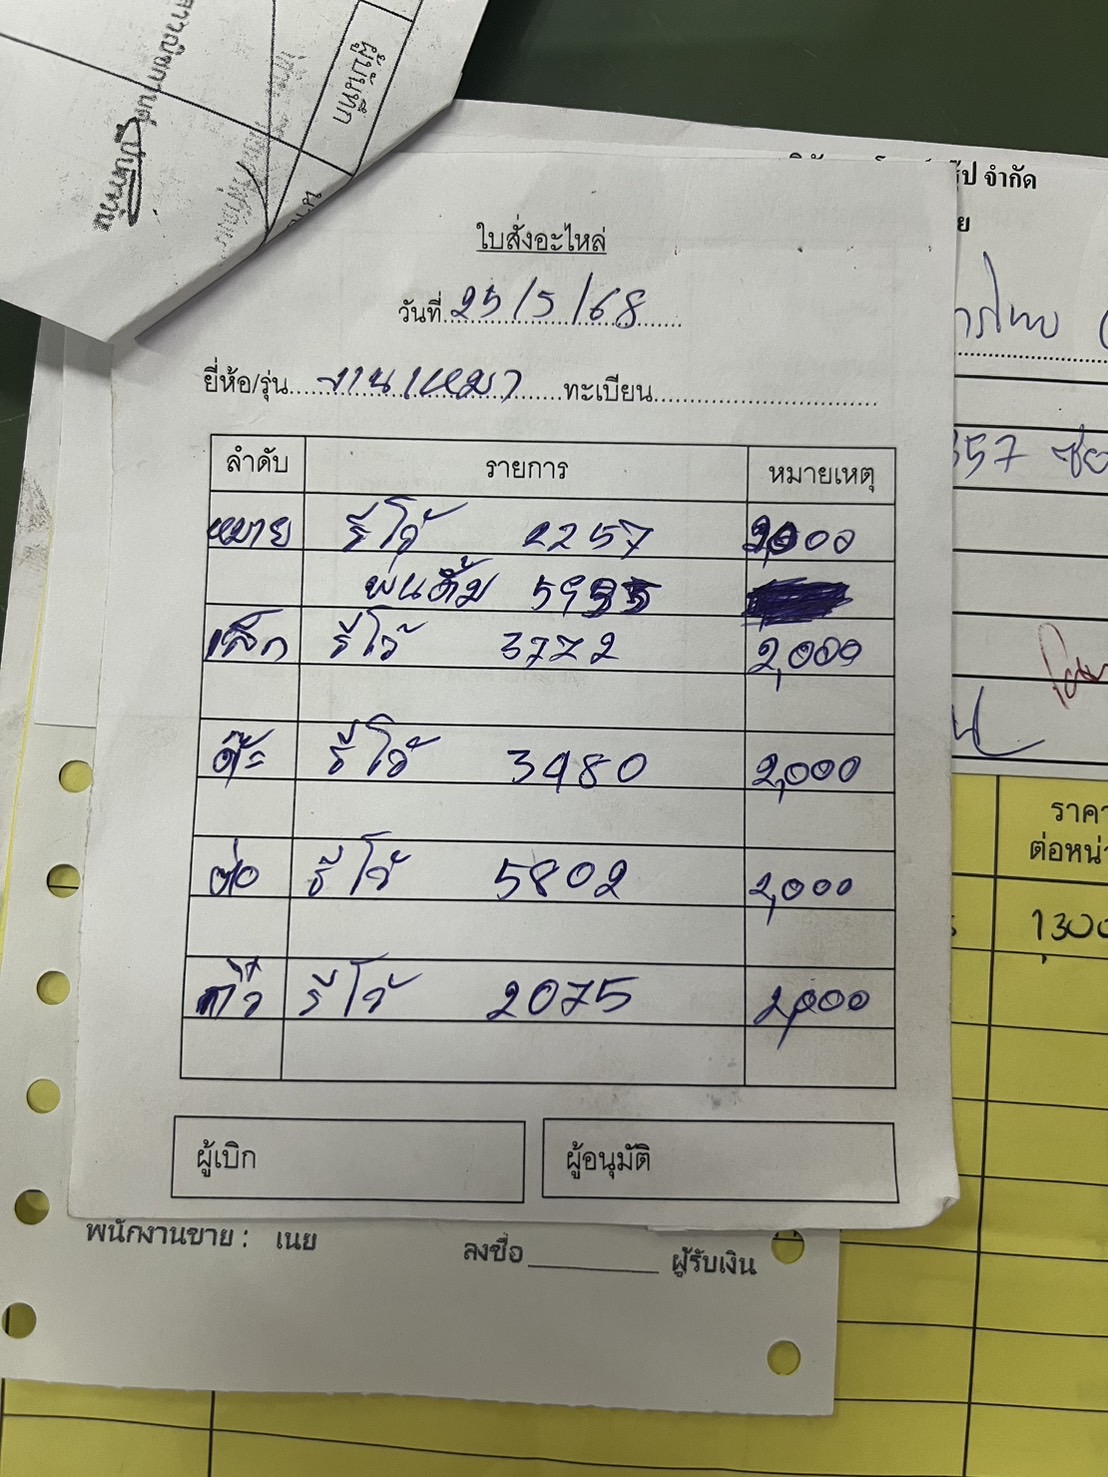 ผู้บันทึก
ป จำกัด
ใบสั่งอะไหล่
วันที่ 25/5/68
ยี่ห้อ/รุ่น งานเหมา ทะเบียน
357
ลำดับ รายการ หมายเหตุ
หมาย รีโว้ 2257 2,000
พ่นดั้ม
เล็ก รีโว้ 3772 2,000
ต๊ะ รีโว้ 3480 2,000
ราคา
ต่อหน่
ต่อ รีโว้ 5802 2,000
1,300
กิ๋ว รีโว้ 2075 2,000
ผู้เบิก ผู้อนุมัติ
พนักงานขาย : เนย ลงชื่อ ผู้รับเงิน